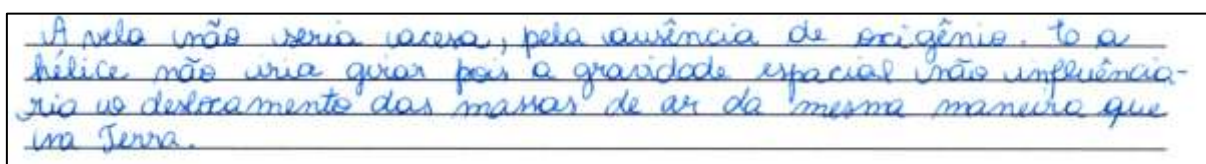 A vela não seria acesa, pela ausência de oxigênio. to a
hélice não iria girar pois a gravidade espacial não influência-
ria o deslocamento das massas de ar da mesma maneira que
na Terra.